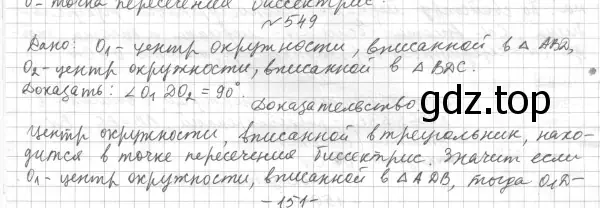 О- точка пересечения биссектрис.
№549
Дано: О₁- центр окружности, вписанной в △ ABD,
О₂- центр окружности, вписанной в △ BDC.
Доказать: ∠O₁ DO₂ = 90°.
Доказательство
gdz.top
Центр окружности, вписанной в треугольник, нахо-
дится в точке пересечения биссектрис. Значит если
О₁- центр окружности, вписанной в △ ADB, тогда O₁D-
-151-